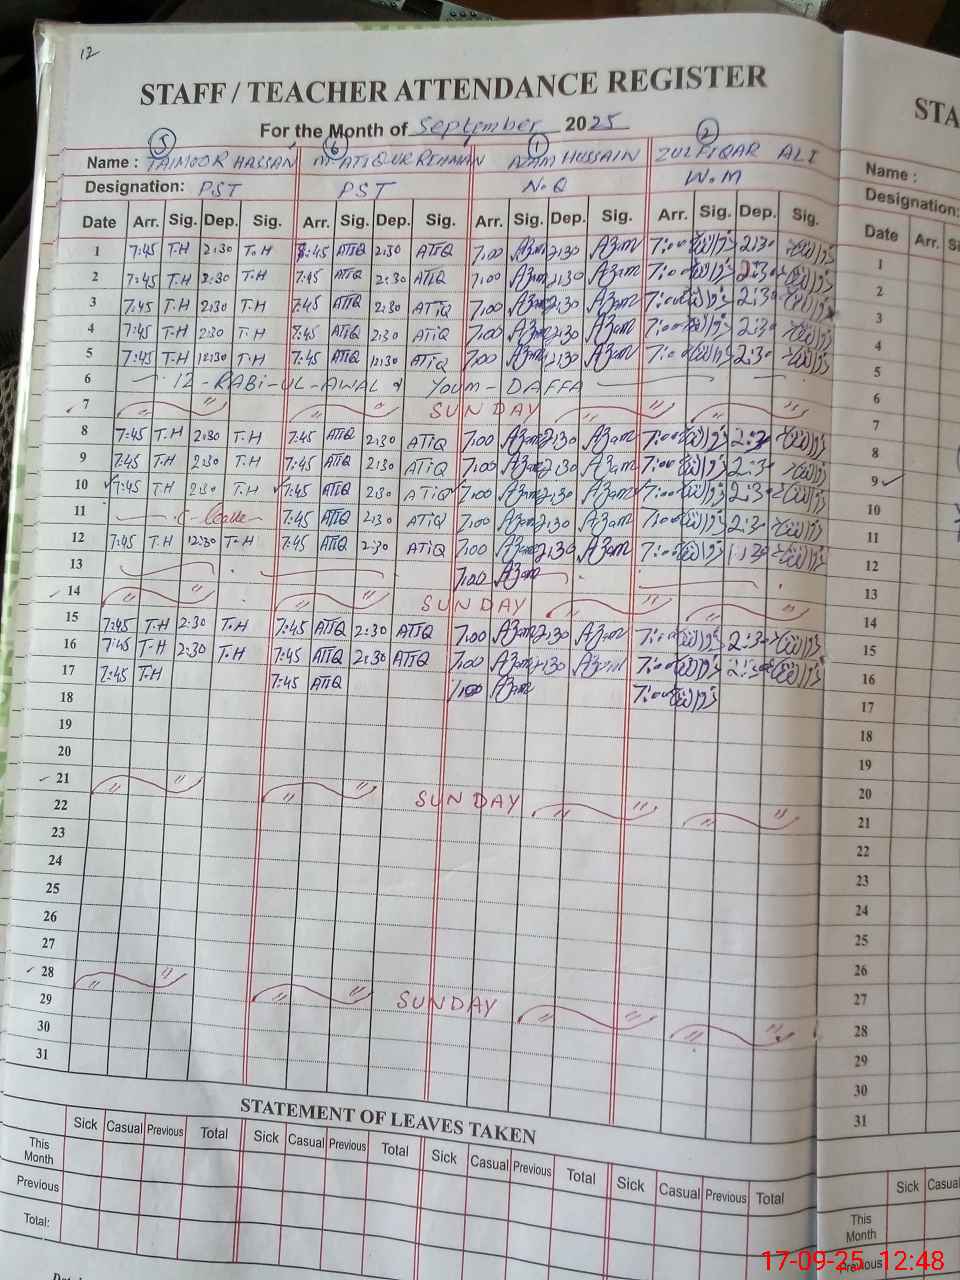 12
STAFF / TEACHER ATTENDANCE REGISTER
STA
For the Month of September 2025
5 6 1 2
Name : TAIMOOR HASSAN M. ATIQ UR REHMAN AZAM HUSSAIN ZULFIQAR ALI
Name :
Designation: PST PST N.Q W.M
Designation:
Date Arr. Sig. Dep. Sig. Arr. Sig. Dep. Sig. Arr. Sig. Dep. Sig. Arr. Sig. Dep. Sig.
Date Arr. Si
1 7:45 T.H 2:30 T.H 7:45 ATIQ 2:30 ATIQ 7,00 Azam 2:30 Azam 7:00 2:30
2 7:45 T.H 2:30 T.H 7:45 ATIQ 2:30 ATIQ 7,00 Azam 2:30 Azam 7:00 2:30
3 7:45 T.H 2:30 T.H 7:45 ATIQ 2:30 ATIQ 7,00 Azam 2:30 Azam 7:00 2:30
4 7:45 T.H 2:30 T.H 7:45 ATIQ 2:30 ATIQ 7,00 Azam 2:30 Azam 7:00 2:30
5 7:45 T.H 12:30 T.H 7:45 ATIQ 12:30 ATIQ 7,00 Azam 12:30 Azam 7:00 2:30
6 12 - RABI - UL - AWAL YOUM - DAFFA
7 SUNDAY
8 7:45 T.H 2:30 T.H 7:45 ATIQ 2:30 ATIQ 7,00 Azam 2:30 Azam 7:00 2:30
9 7:45 T.H 2:30 T.H 7:45 ATIQ 2:30 ATIQ 7,00 Azam 2:30 Azam 7:00 2:30
10 7:45 T.H 2:30 T.H 7:45 ATIQ 2:30 ATIQ 7,00 Azam 2:30 Azam 7:00 2:30
11 C-Leave 7:45 ATIQ 2:30 ATIQ 7,00 Azam 2:30 Azam 7:00 2:30
12 7:45 T.H 12:30 T.H 7:45 ATIQ 2:30 ATIQ 7,00 Azam 2:30 Azam 7:00
13 7,00 Azam
14 SUNDAY
15 7:45 T.H 2:30 T.H 7:45 ATIQ 2:30 ATIQ 7,00 Azam 2:30 Azam 7:00 2:30
16 7:45 T.H 2:30 T.H 7:45 ATIQ 2:30 ATIQ 7,00 Azam 2:30 Azam 7:00 2:30
17 7:45 T.H 7:45 ATIQ 7,00 Azam 7:00
18
19
20
21 SUNDAY
22
23
24
25
26
27
28 SUNDAY
29
30
31
1
2
3
4
5
6
7
8
9
10
11
12
13
14
15
16
17
18
19
20
21
22
23
24
25
26
27
28
29
30
31
STATEMENT OF LEAVES TAKEN
Sick Casual Previous Total Sick Casual Previous Total Sick Casual Previous Total Sick Casual Previous Total
Sick Casual
This Month
Previous
Total:
This Month
Previous
17-09-25 12:48